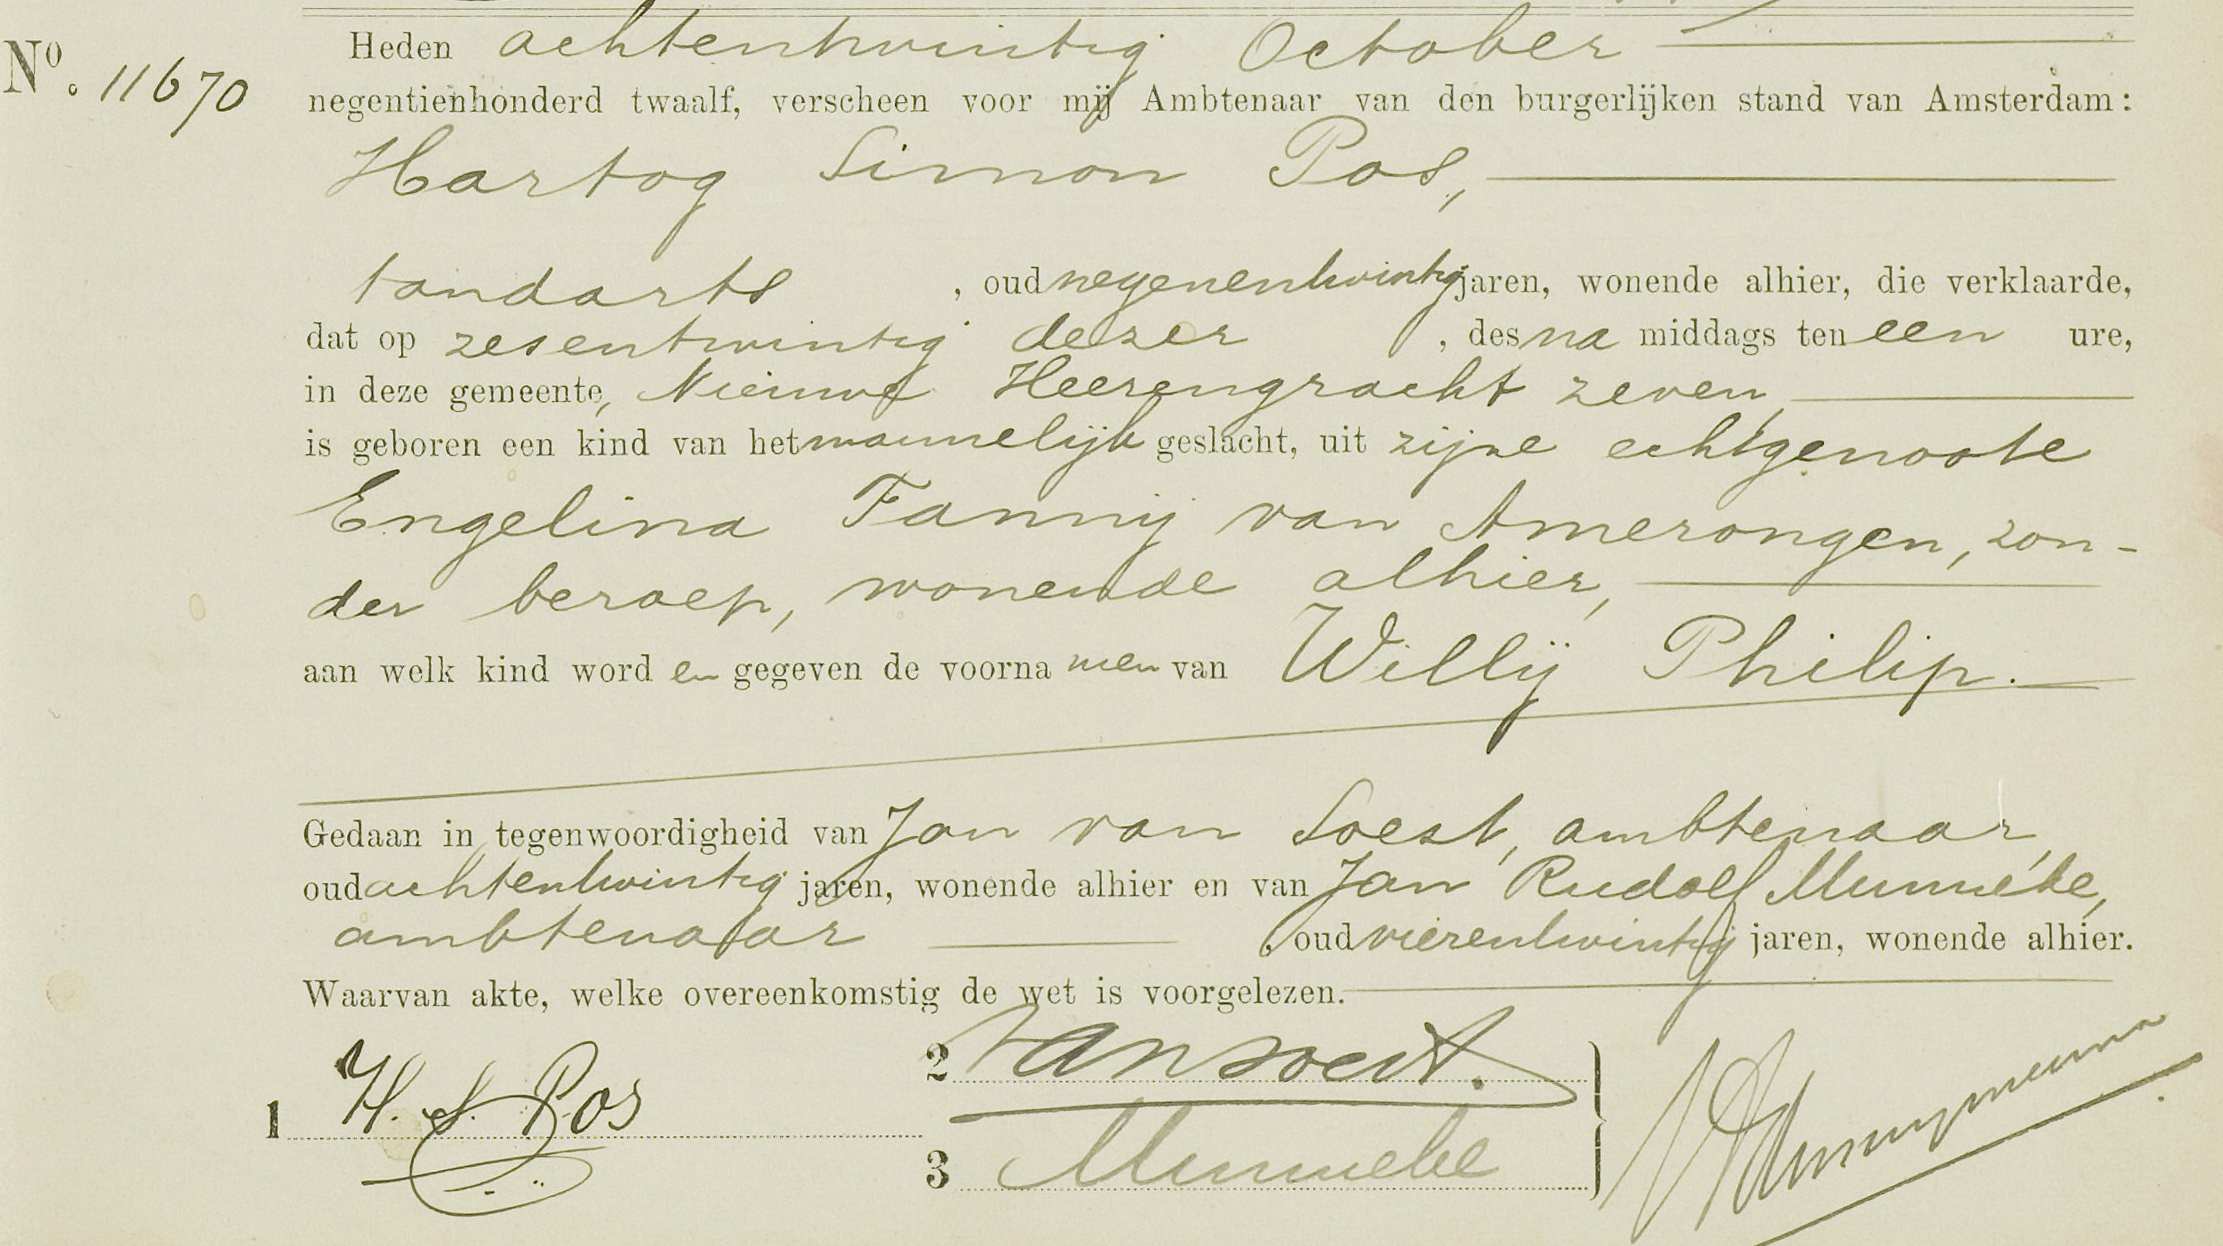 Nº. 11670
Heden achtentwintig October
negentienhonderd twaalf, verscheen voor mij Ambtenaar van den burgerlijken stand van Amsterdam:
Hartog Simon Pos,
tandarts, oud negenentwintig jaren, wonende alhier, die verklaarde,
dat op zesentwintig dezer, des na middags ten een ure,
in deze gemeente, Nieuwe Heerengracht zeven,
is geboren een kind van het mannelijk geslacht, uit zijne echtgenoote
Engelina Fannij van Amerongen, zon-
der beroep, wonende alhier,
aan welk kind word en gegeven de voorna men van Willij Philip.
Gedaan in tegenwoordigheid van Jan van Soest, ambtenaar,
oud achtentwintig jaren, wonende alhier en van Jan Rudolf Munneke,
ambtenaar, oud vierentwintig jaren, wonende alhier.
Waarvan akte, welke overeenkomstig de wet is voorgelezen.
1 H. S. Pos
2 van Soest.
3 Munneke